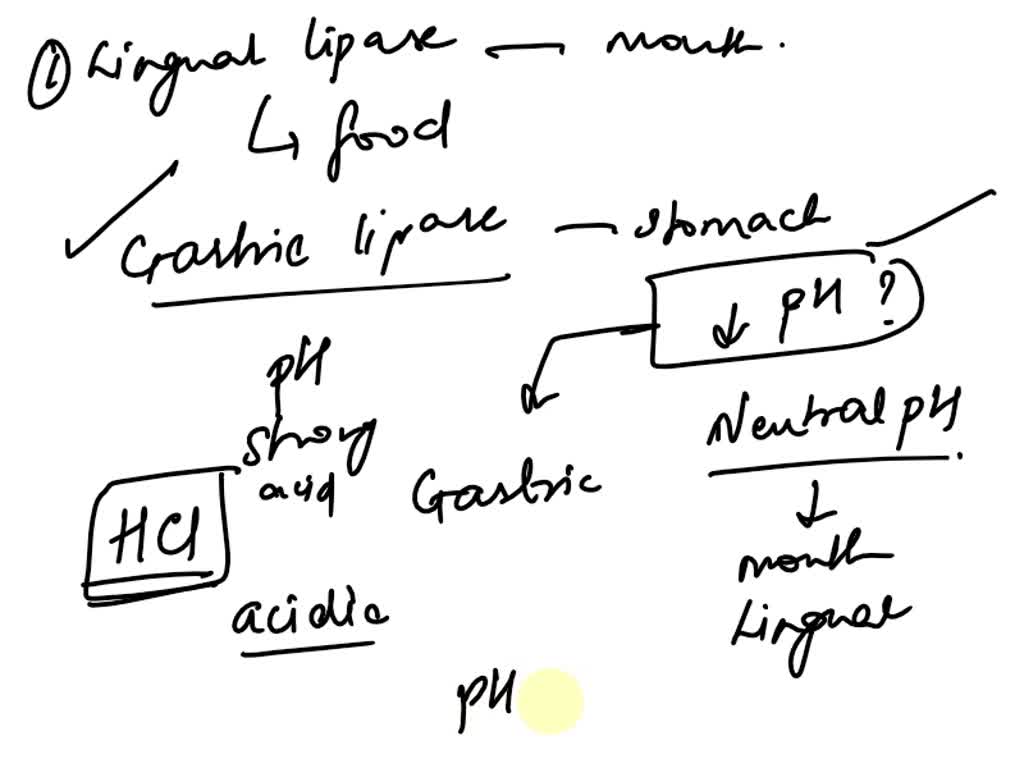 ① Lingual lipase — mouth.
↳ food
✓ Gastric lipase — stomach
↓ pH ?
pH
strong
acid
HCl
acidic
Gastric
Neutral pH.
↓
mouth
Lingual
pH